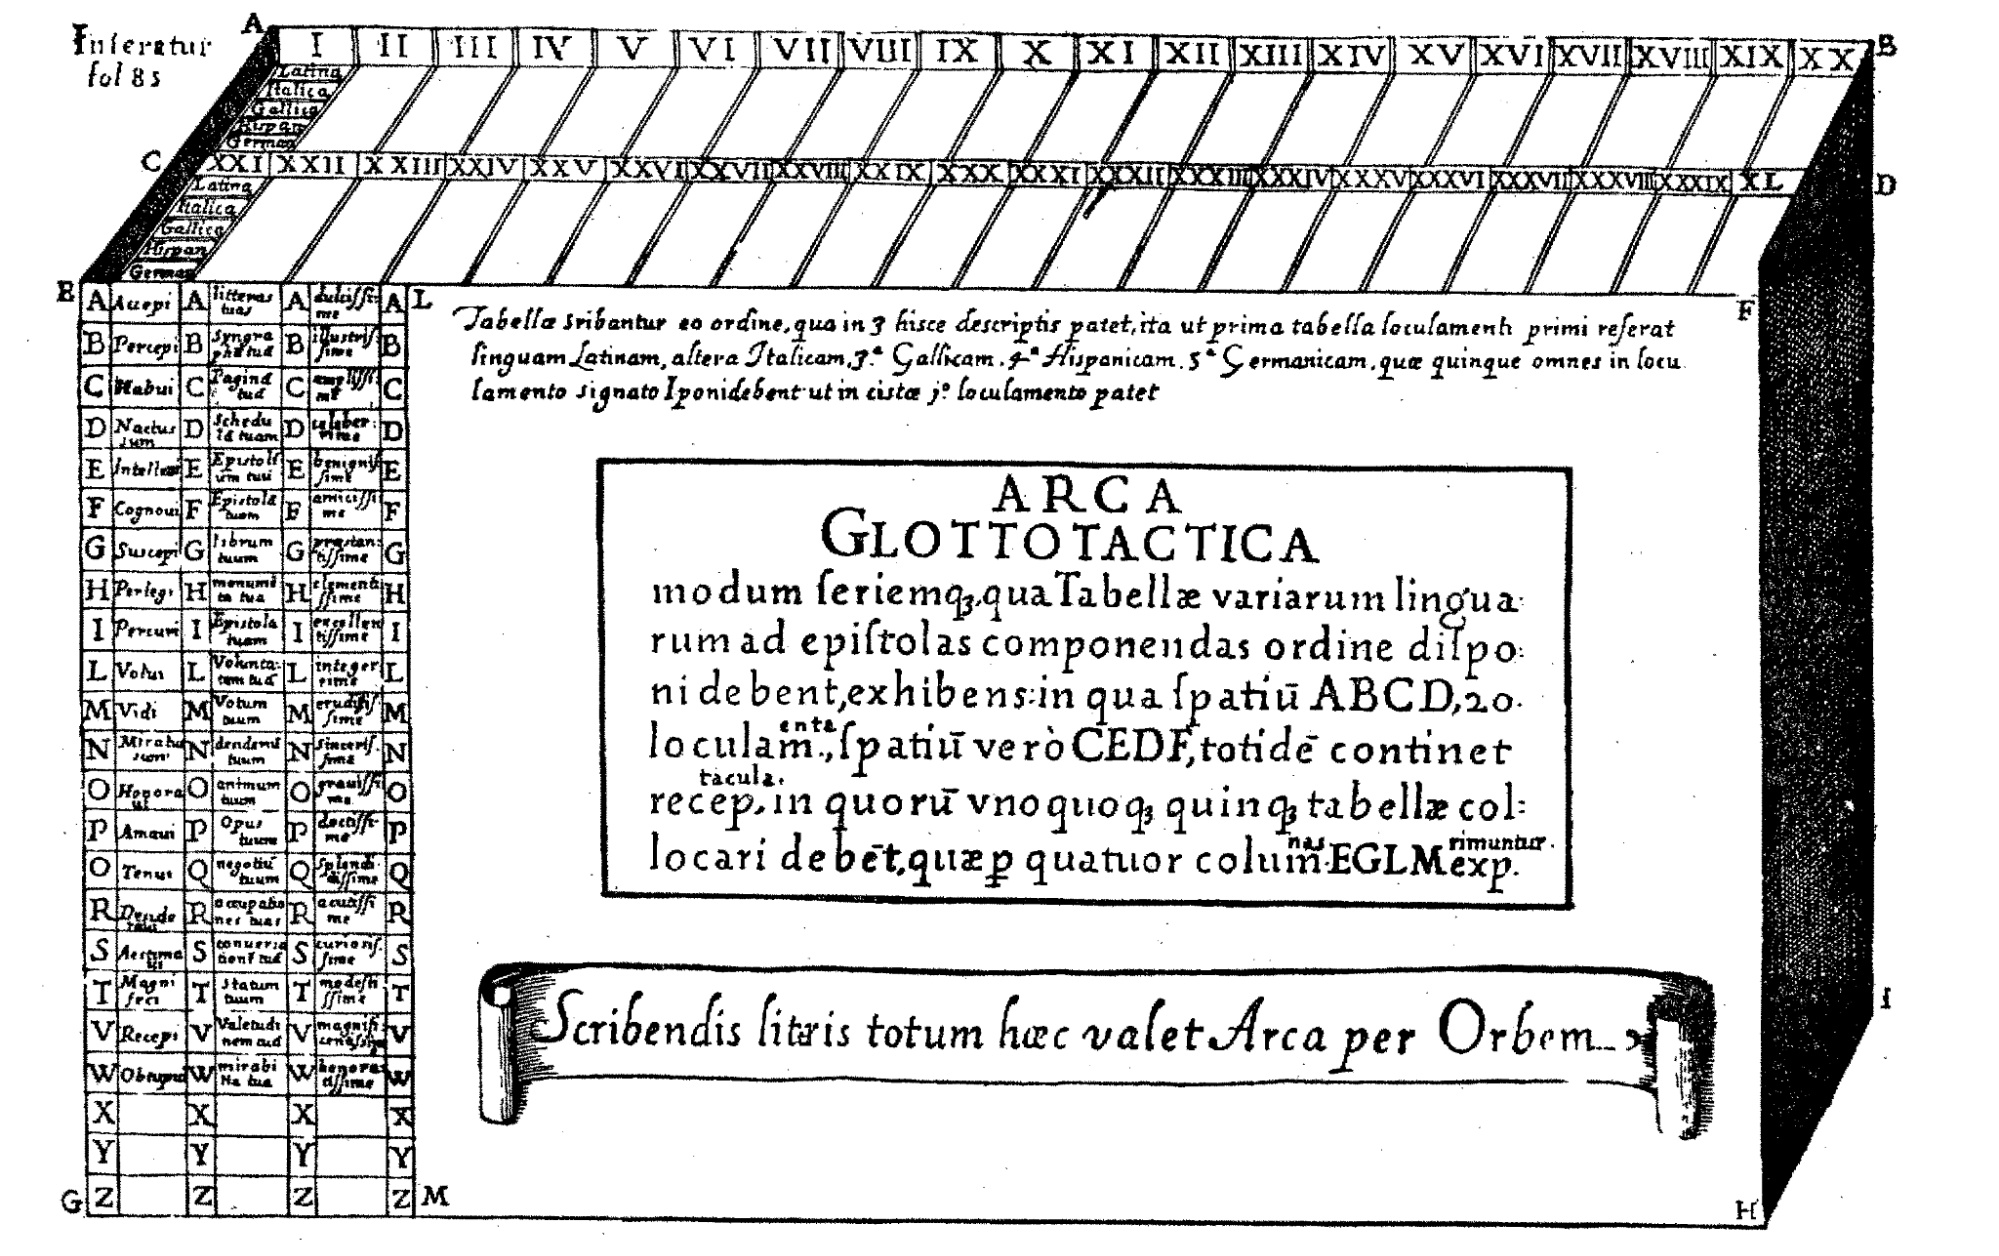 Inseratur
fol 85
A I II III IV V VI VII VIII IX X XI XII XIII XIV XV XVI XVII XVIII XIX XX B
Latina
Italica
Gallica
Hispan
German
C XXI XXII XXIII XXIV XXV XXVI XXVII XXVIII XXIX XXX XXXI XXXII XXXIII XXXIV XXXV XXXVI XXXVII XXXVIII XXXIX XL D
Latina
Italica
Gallica
Hispan
German
E L F
A Accepi A litteras tuas A dulcissi: me A
B Percepi B Syngra phā tuā B illustris sime B
C Habui C Paginā tuā C amplissi me C
D Nactus sum D Schedu lā tuam D celeber: rime D
E Intellexi E Epistoli um tui E benignis sime E
F Cognoui F Epistolā tuam F amicissi me F
G Suscepi G librum tuum G præstan: tissime G
H Perlegi H monumē ta tua H clementi ssime H
I Percurri I Epistola tuam I excellen tissime I
L Volui L Volunta: tem tuā L integer rime L
M Vidi M Votum tuum M erudits sime M
N Miratus sum N N sinceris. sime N
O Honora ui O animum tuum O grauissi me O
P Amaui P Opus tuum P doctissi me P
O Tenui Q negotiū tuum Q splendi dissime Q
R Deside raui R occupatio nes tuas R acutissi me R
S Aestima ui S conuersa tionē tuā S curiosis. sime S
T Magni feci T Statum tuum T modesti ssime T
V Recepi V Valetudi nem tuā V magnifi: V
W W mirabi lia tua W honora tissime W
X X X X
Y Y Y Y
G Z Z Z Z M
Tabellæ sribantur eo ordine, qua in 3 hisce descriptis patet, ita ut prima tabella loculamenti primi referat
linguam Latinam, altera Italicam, 3.ª Gallicam. 4ª Hispanicam. 5ª Germanicam, quæ quinque omnes in locu
lamento signato I ponidebent ut in cistæ j.º loculamento patet
ARCA
GLOTTOTACTICA
modum ſeriemqꝫ, qua Tabellæ variarum lingua:
rum ad epiſtolas componendas ordine diſpo:
ni debent, exhibens: in qua ſpatiū ABCD, 20.
loculam.enta, ſpatiū verò CEDF, totidē continet
recep.tacula. in quorū vnoquoqꝫ quinqꝫ tabellæ col:
locari debēt, quæꝑ quatuor colum̄.nas EGLM exp.rimuntur.
Scribendis litæris totum hæc valet Arca per Orbem
I
H